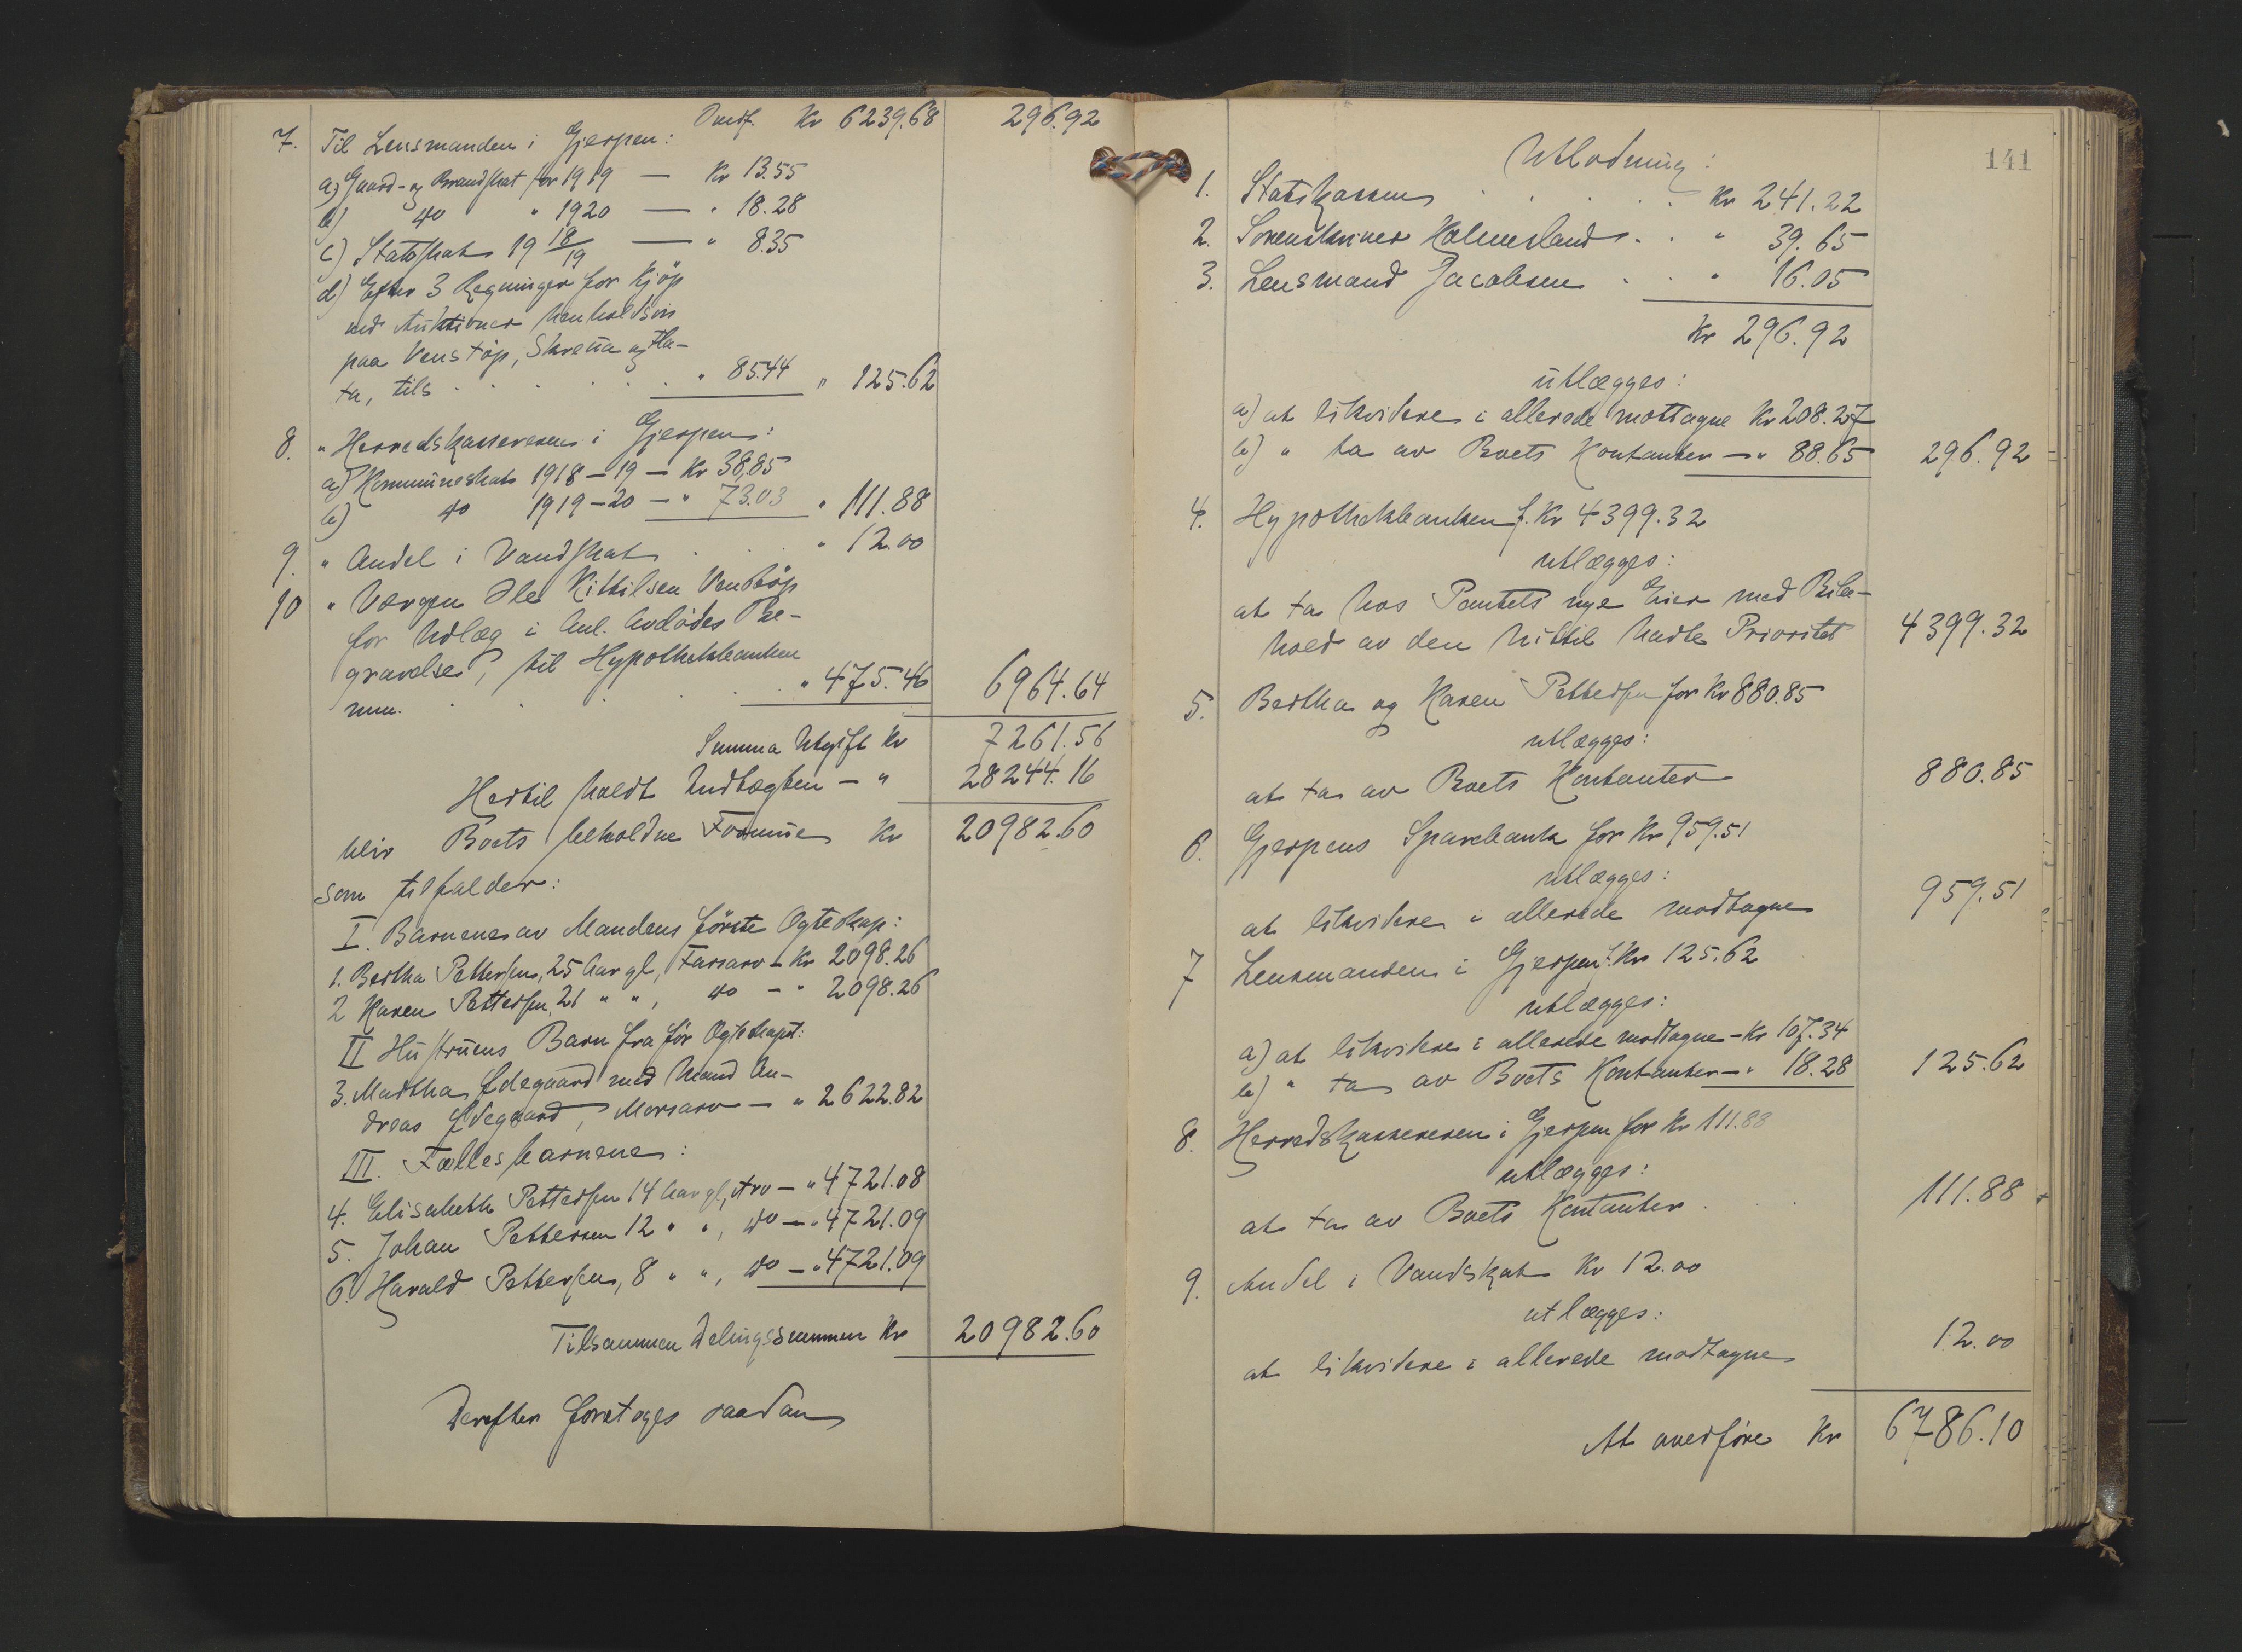 Overf. Kr 6239.68 296.92
7. Til Lensmanden i Gjerpen:
a) Gaard- og Brandskat for 1919 — Kr 13.55
b) do " 1920 — " 18.28
c) Statsskat 19 18/19 — " 8.35
d) Efter 3 Regninger for Kjöp
ved Auktioner henholdsvis
paa Venstöp, Skrena og Fla-
ta, tils. " 85.44 " 125.62
8. " Herredskassereren i Gjerpen:
a) Kommuneskat 1918-19 — Kr 38.85
b) do 1919-20 — " 73.03 " 111.88
9. " Andel i Vandskat . . . " 12.00
10 " Værgen Ole Kittilsen Venstöp
for Utlæg i Anl. Avdødes Be-
gravelse, til Hypothekbanken
mm. . . . " 475.46 6964.64
Summa Utgift Kr 7261.56
Hertil holdt Indtægten — " 28244.16
blir Boets beholdne Formue Kr 20982.60
som tilfalder:
I. Barnene av Mandens første Ægteskap:
1. Bertha Pettersen, 25 Aar gl, Farsarv - Kr 2098.26
2 Karen Pettersen, 21 " ", do - " 2098.26
II Hustruens Barn fra før Ægteskapet:
3. Martha Ødegaard med Mand An-
dreas Ødegaard, Morsarv — " 2622.82
III. Fællesbarnene:
4. Elisabeth Pettersen 14 Aar gl, Arv — " 4721.08
5. Johan Pettersen 12 " ", do — " 4721.09
6. Harald Pettersen, 8 " ", do — " 4721.09
Tilsammen Delingssummen Kr 20982.60
Derefter foretoges saadan
141
Utlodning:
1. Statskassen . . . Kr 241.22
2. Sorenskriver Holmesland . . " 39.65
3. Lensmand Jacobsen . . " 16.05
Kr 296.92
utlægges:
a) at likvidere i allerede mottagne Kr 208.27
b) " ta av Boets Kontanter — " 88.65 296.92
4. Hypothekbanken f. Kr 4399.32
utlægges:
at ta hos Pantets nye Eier med Bibe-
hold av den hittil havte Prioritet 4399.32
5. Bertha og Karen Pettersen for Kr 880.85
utlægges:
at ta av Boets Kontanter 880.85
6. Gjerpens Sparebank for Kr 959.51
utlægges:
at likvidere i allerede modtagne 959.51
7 Lensmanden i Gjerpen f. Kr 125.62
utlægges:
a) at likvidere i allerede modtagne - Kr 107.34
b) " ta av Boets Kontanter — " 18.28 125.62
8. Herredskassereren i Gjerpen for Kr 111.88
utlægges:
at ta av Boets Kontanter . . 111.88
9. Andel i Vandskat Kr 12.00
utlægges:
at likvidere i allerede modtagne 12.00
At overføre Kr 6786.10